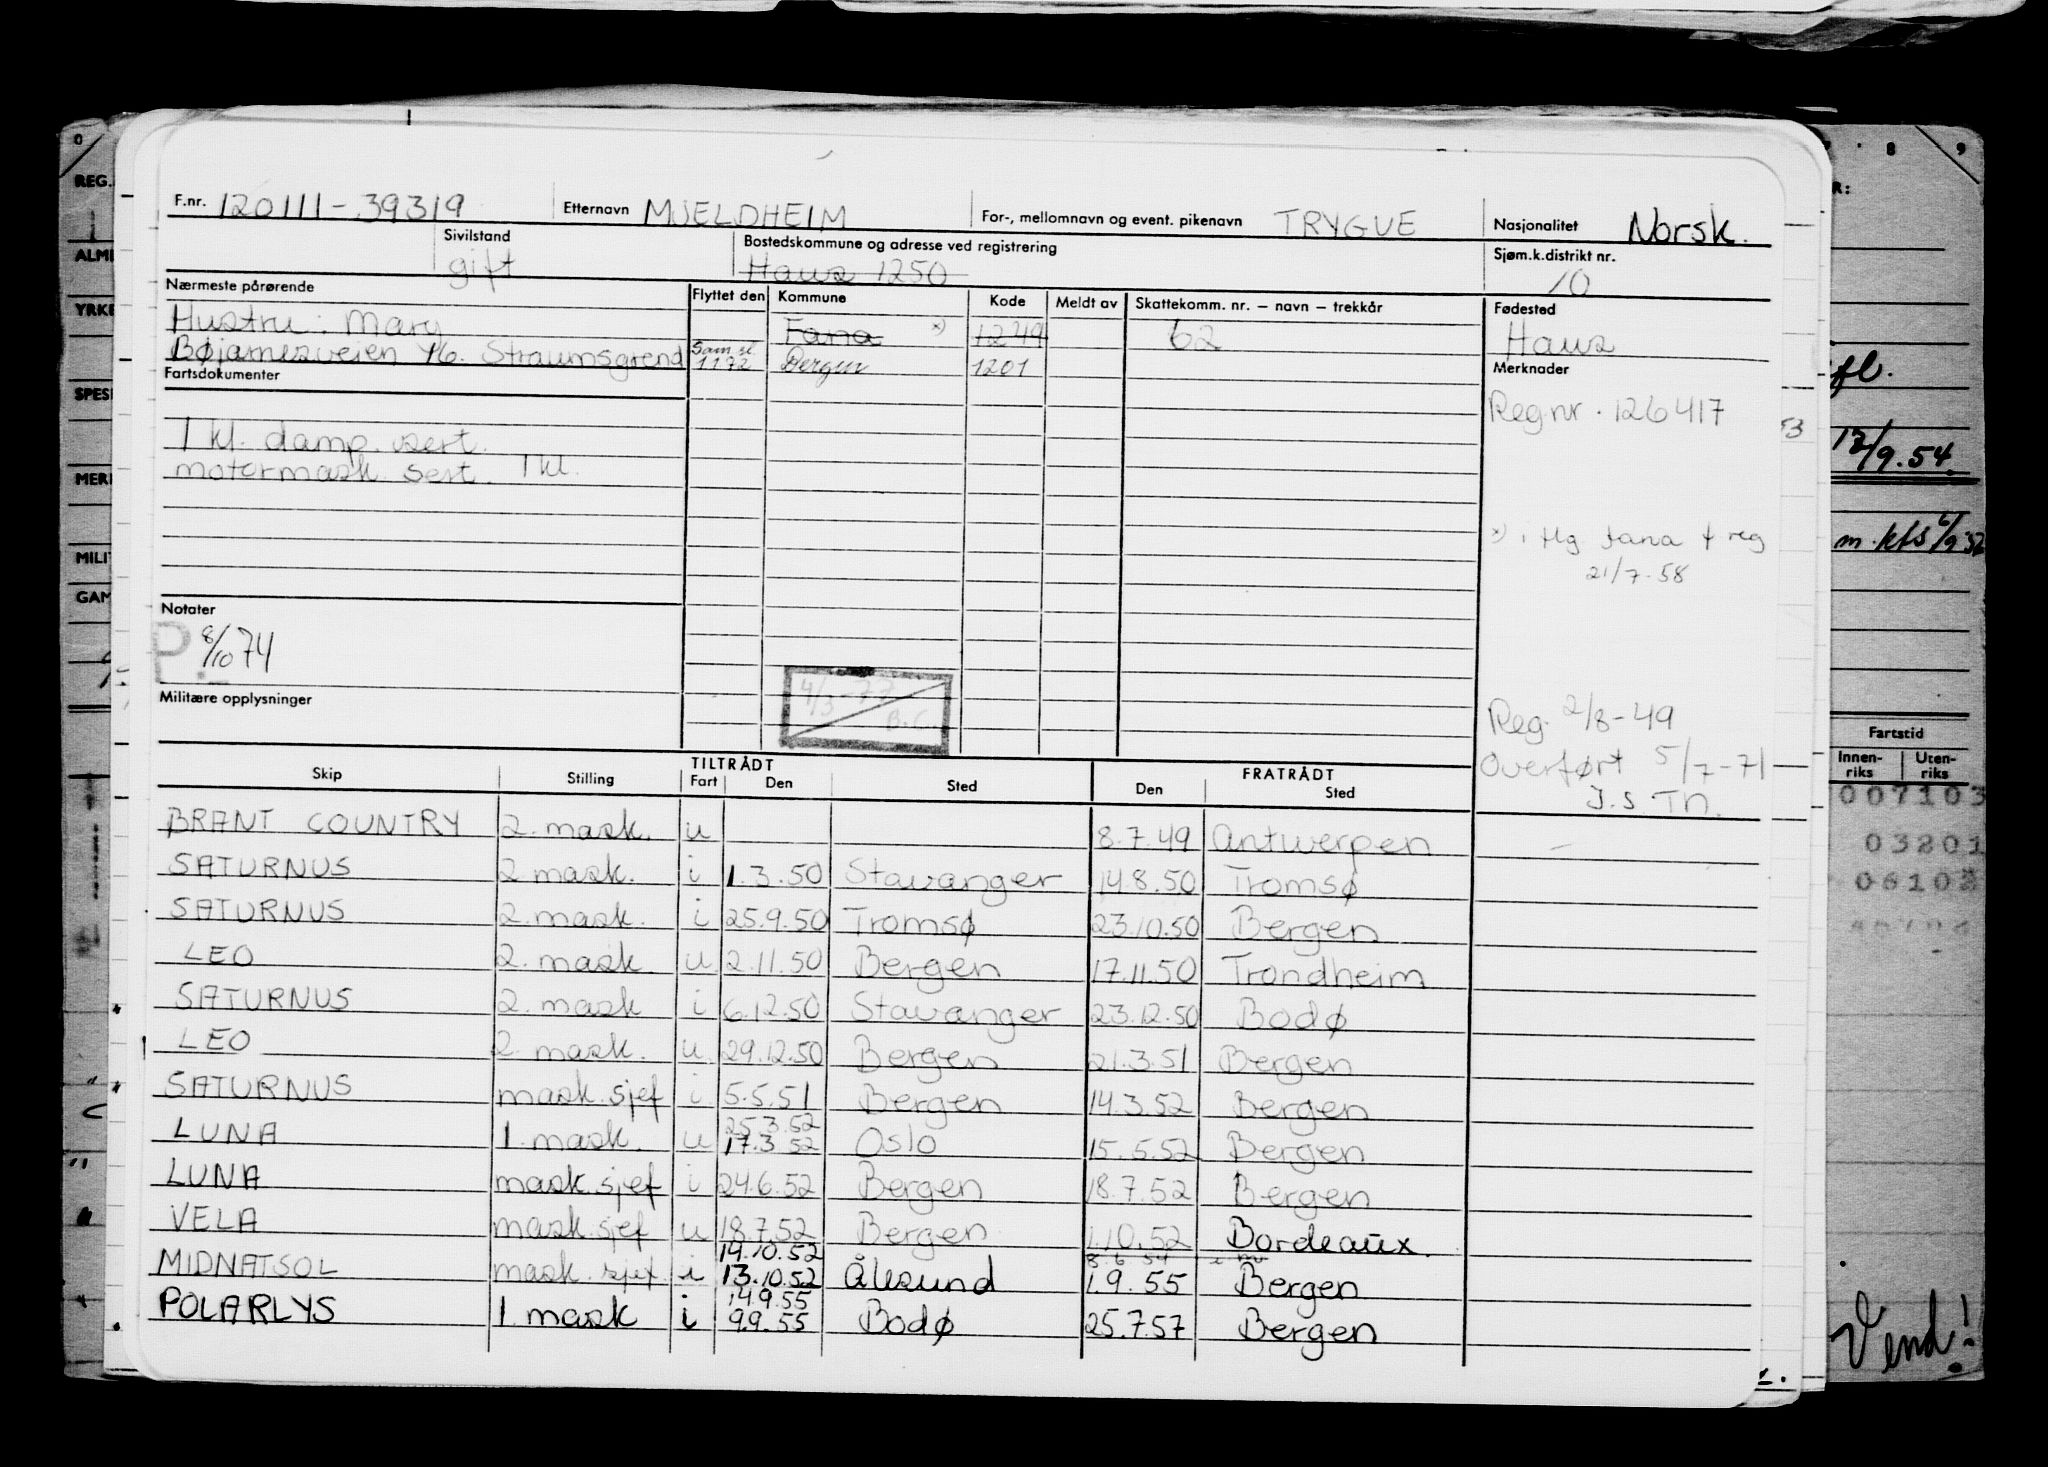 F.nr. 120111-39319 Etternavn MJELDHEIM For-, mellomnavn og event. pikenavn TRYGVE Nasjonalitet Norsk.
Sivilstand gift Bostedskommune og adresse ved registrering Haus 1250 Sjøm.k.distrikt nr. 10
Nærmeste pårørende Flyttet den Kommune Kode Meldt av Skattekomm. nr. – navn – trekkår Fødested
Hustru: Mary Fana *) 1249 62 Haus
Bøjarnesveien 46. Straumsgrend Sam.sl. 1172 Bergen 1201
Fartsdokumenter Merknader
Regnr. 126417
1 kl. damp. sert.
motormask. sert. 1 kl.
*) i flg. Fana f reg
21/7-58
Notater
P. 8/10 74
4/3-77
B.C.
Militære opplysninger
Reg. 2/8-49
Overført 5/7-71
J.S Tn.
TILTRÅDT FRATRÅDT
Skip Stilling Fart Den Sted Den Sted
BRANT COUNTRY 2. mask. u 8.7.49 Antwerpen
SATURNUS 2 mask. i 1.3.50 Stavanger 14.8.50 Tromsø
SATURNUS 2. mask. i 25.9.50 Tromsø 23.10.50 Bergen
LEO 2. mask. u 2.11.50 Bergen 17.11.50 Trondheim
SATURNUS 2. mask i 6.12.50 Stavanger 23.12.50 Bodø
LEO 2. mask. u. 29.12.50 Bergen 21.3.51 Bergen
SATURNUS mask.sjef i 5.5.51 Bergen 14.3.52 Bergen
25.3.52
LUNA 1. mask. u 17.3.52 Oslo 15.5.52 Bergen
LUNA mask.sjef i 24.6.52 Bergen 18.7.52 Bergen
VELA mask.sjef u 18.7.52 Bergen 1.10.52 Bordeaux.
14.10.52 8.6.54
MIDNATSOL mask.sjef. i 13.10.52 Ålesund 1.9.55 Bergen
14.9.55
POLARLYS 1. mask i 9.9.55 Bodø 25.7.57 Bergen
REG.
ALM
YRKE
SPES
MER
MILI
GAM
fl.
12/9.54.
m. kfs 6/9 52
Fartstid
Innen-riks Uten-riks
007103
03201
Vend!